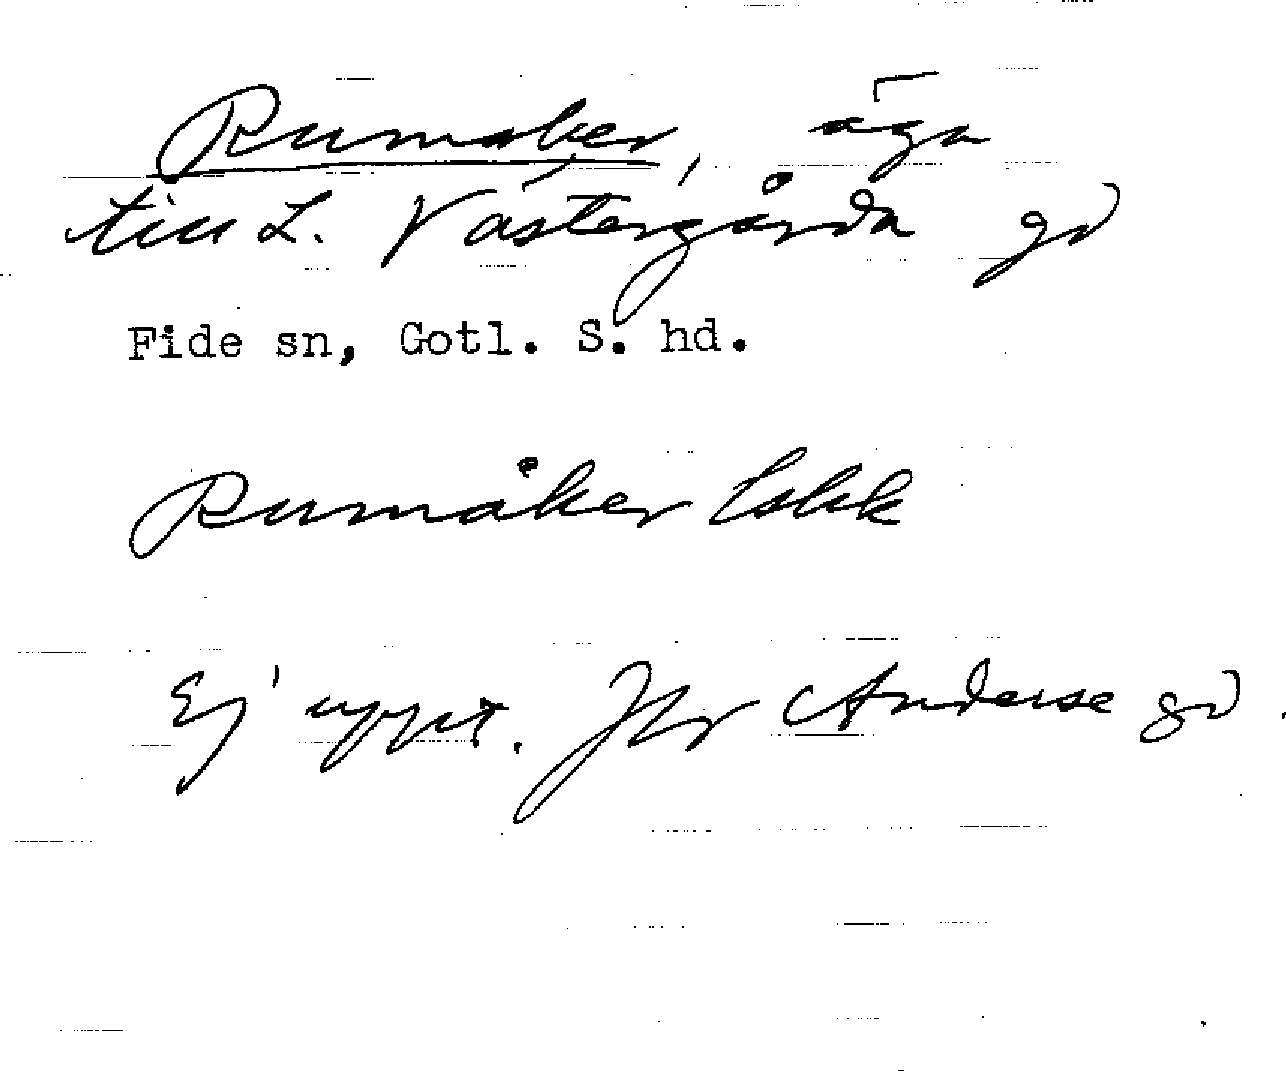 Rumaker, äga
till L. Västergårda gd
Fide sn, Gotl. S. hd.
Rumåker Lskk
Ej uppt. Jfr Anderse gd.